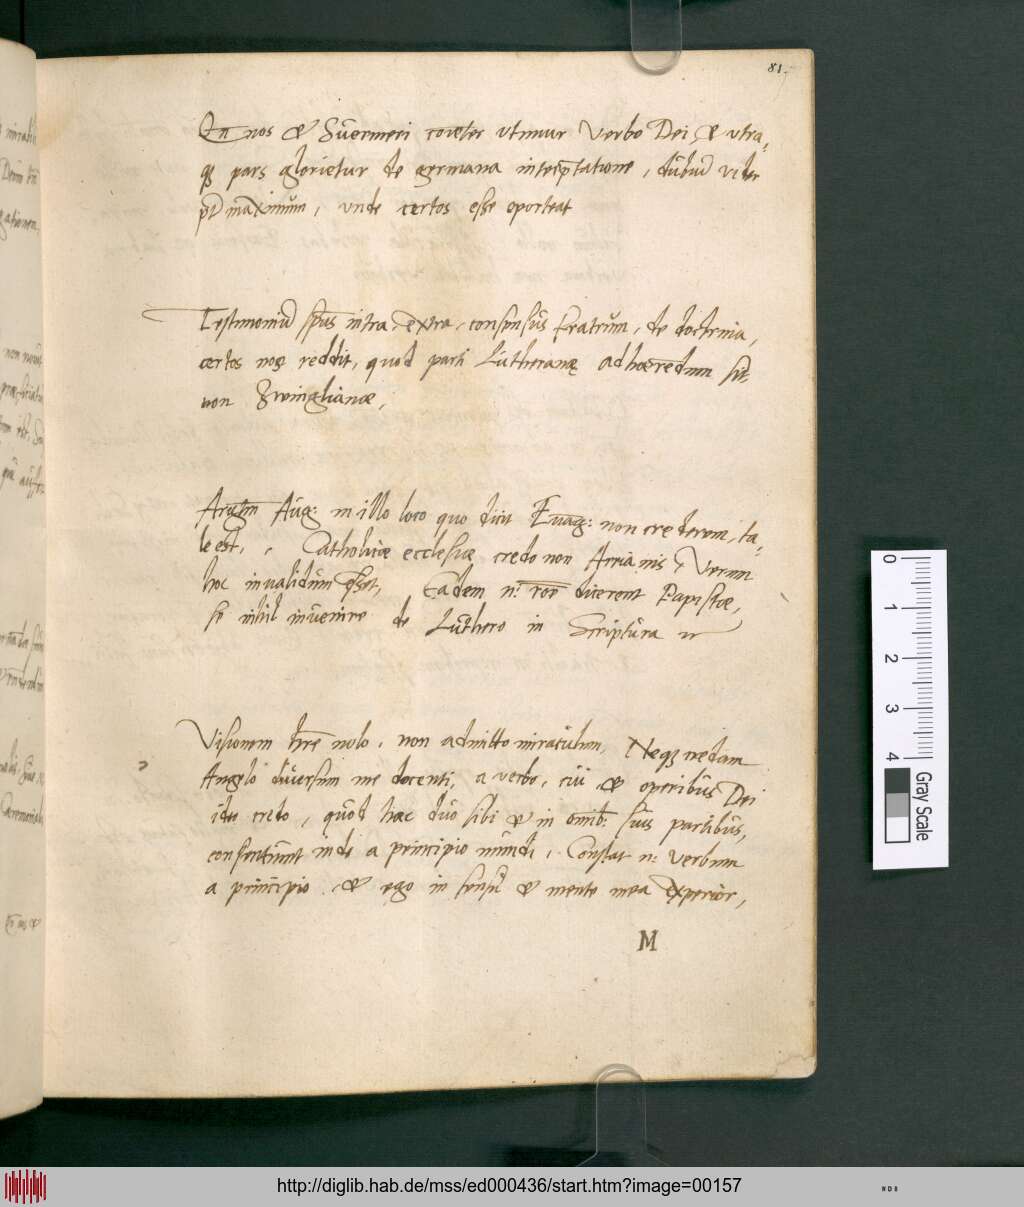 81.
Qn̄ nos & Sŭermeri coṽeter vtimur Verbo Dei, & vtra-
qȝ pars glorietur de germana interp̄tatione, dubiŭ vider
pt̄ maximŭm, vnde certos esse oporteat
Testimoniŭ sp̄us intra, extra, consensŭs fratrŭm, de doctrina,
certos nos reddit, quod parti Lŭtheranæ adhærendum sit,
non Zwinglianæ,
Argtm̄ Aŭg: in illo loco quo dicit Evāg: non crederem, ta-
le est, Catholicæ ecclesiæ credo non Arrianis, Verum
hoc inualidŭm esset, Eadem n: rōne dicerent Papistæ,
se nihil inŭenire de Lŭthero in Scriptŭra
Visionem hr̄e nolo, non admitto miracŭlum, Neqȝ nedum
Angelo diŭersŭm me docenti, a verbo, cŭi & operibŭs Dei
ideo credo, quŏd hæc dŭo sibi & in omib: sŭis partibŭs,
consentiŭnt inde a principio mŭndi, Constat n: verbum
a principio & ego in sensŭ & mente mea experior,
M
non
Zc.
qn̄ nos &
0
1
2
3
4
Gray Scale
http://diglib.hab.de/mss/ed000436/start.htm?image=00157